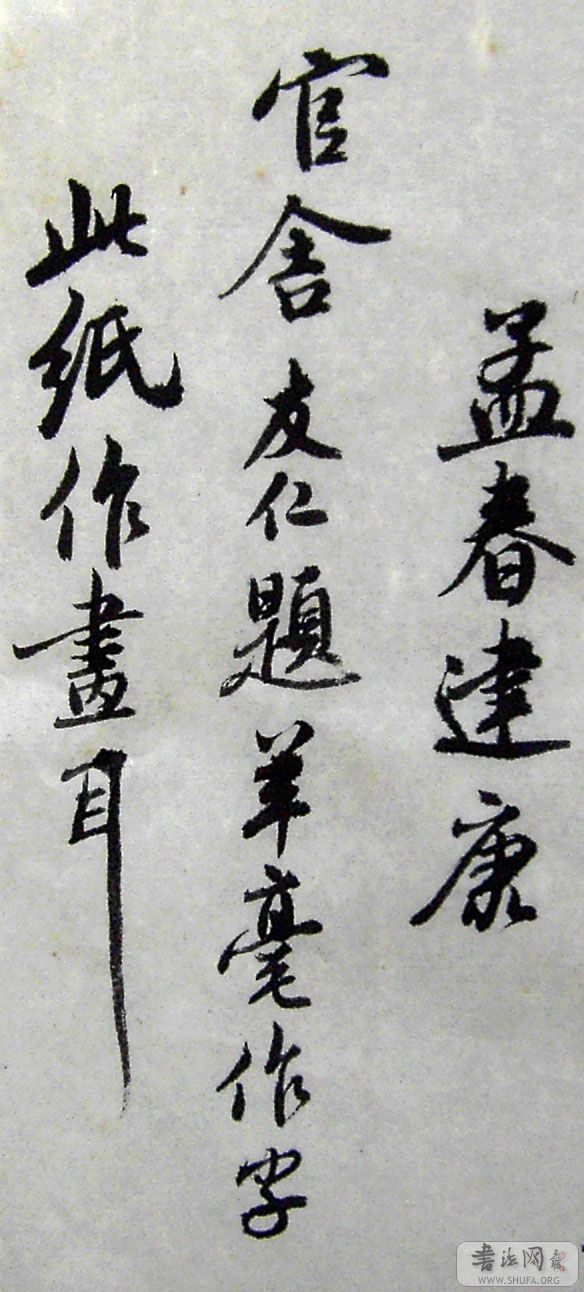 孟春建康
官舍友仁題羊毫作字
此紙作畫耳
書法网
WWW.SHUFA.ORG